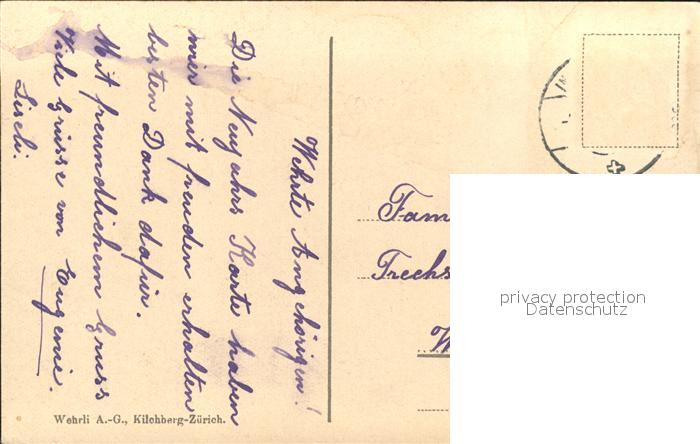 Wehrte Angehörigen!
Die Neujahrs Karte haben
mir mit freuden erhalten
besten Dank dafür.
Mit freundlichem Gruss
Viele Grüsse von Eugenie.
Liseli.
Wehrli A.-G., Kilchberg-Zürich.
Fam
Frechs
W
privacy protection
Datenschutz